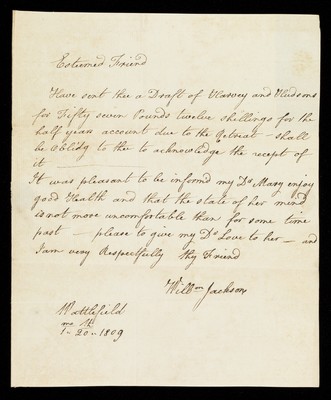 Esteemed Friend
Have sent thee a Draft of Vlasvey and Hudsons
for Fifty seven Pounds twelve shillings for the
half years account due to the Retreat – shall
be Oblidg to thee to acknowledge the receipt of
it
It was pleasant to be informed my Dr Mary enjoy
good Health and that the state of her mind
is not more uncomfortable then for some time
past — please to give my Dr Love to her — and
I am very Respectfully thy Friend
Willm Jackson
Wattlefield
1 mo 20 th 1809